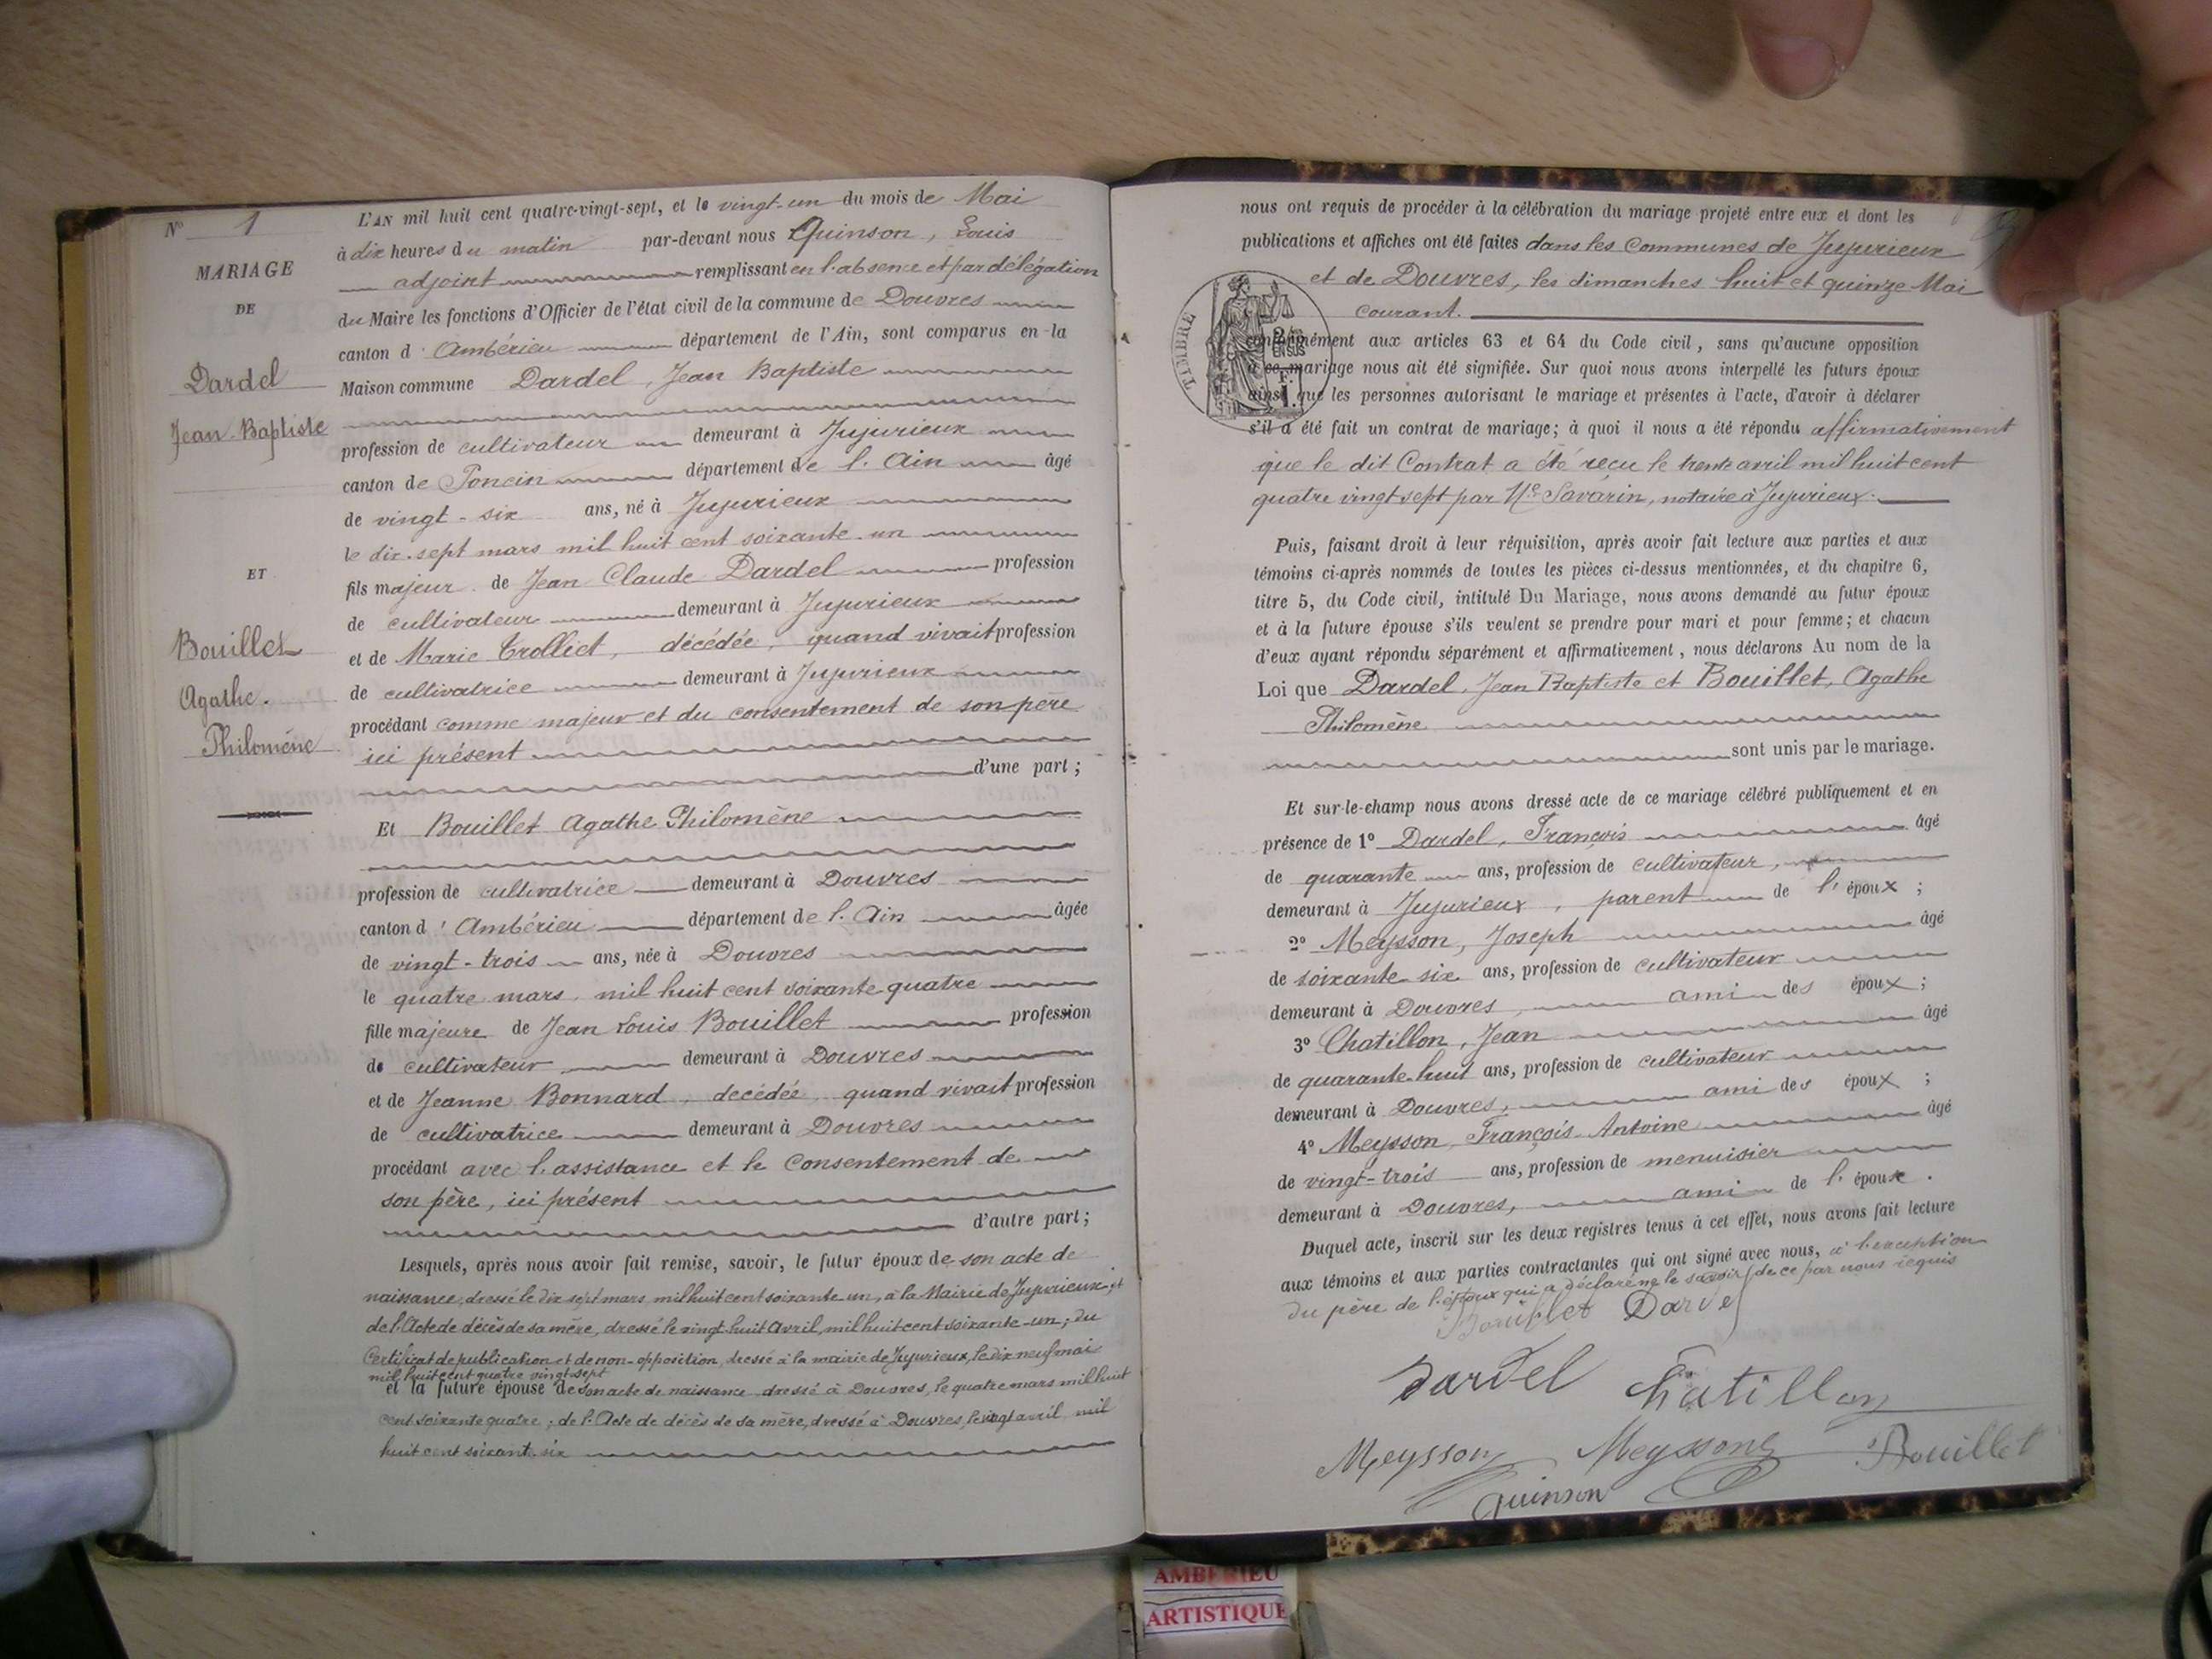 N° 1
MARIAGE
DE
Dardel
Jean-Baptiste
ET
Bouillet
Agathe.
Philomène
L'AN mil huit cent quatre-vingt-sept, et le vingt-un du mois de Mai
à dix heures du matin par-devant nous Quinson, Louis
adjoint remplissant en l'absence et par délégation
du Maire les fonctions d'Officier de l'état civil de la commune de Douvres
canton d' Ambérieu département de l'Ain, sont comparus en la
Maison commune Dardel, Jean Baptiste
profession de cultivateur demeurant à Jujurieux
canton de Poncin département de l'Ain âgé
de vingt-six ans, né à Jujurieux
le dix-sept mars mil huit cent soixante-un
fils majeur de Jean Claude Dardel profession
de cultivateur demeurant à Jujurieux
et de Marie Trolliet, décédée, quand vivait profession
de cultivatrice demeurant à Jujurieux
procédant comme majeur et du consentement de son père
ici présent
d'une part;
Et Bouillet Agathe Philomène
profession de cultivatrice demeurant à Douvres
canton d' Ambérieu département de l'Ain âgée
de vingt-trois ans, née à Douvres
le quatre mars, mil huit cent soixante quatre
fille majeure de Jean Louis Bouillet profession
de cultivateur demeurant à Douvres
et de Jeanne Bonnard, décédée, quand vivait profession
de cultivatrice demeurant à Douvres
procédant avec l'assistance et le Consentement de
son père, ici présent
d'autre part;
Lesquels, après nous avoir fait remise, savoir, le futur époux de son acte de
naissance, dressé le dix sept mars, mil huit cent soixante un, à la Mairie de Jujurieux; et
de l'Acte de décès de sa mère, dressé le vingt huit Avril, mil huit cent soixante-un; du
Certificat de publication et de non-opposition, dressé à la mairie de Jujurieux, le dix neuf mai
mil huit cent quatre vingt sept
et la future épouse de son acte de naissance dressé à Douvres, le quatre mars mil huit
cent soixante quatre; de l'Acte de décès de sa mère, dressé à Douvres, le vingt avril mil
huit cent soixante six
nous ont requis de procéder à la célébration du mariage projeté entre eux et dont les
publications et affiches ont été faites dans les Communes de Jujurieux
et de Douvres, les dimanches huit et quinze Mai
courant.
TIMBRE
conformément aux articles 63 et 64 du Code civil, sans qu'aucune opposition
à ce mariage nous ait été signifiée. Sur quoi nous avons interpellé les futurs époux
ainsi que les personnes autorisant le mariage et présentes à l'acte, d'avoir à déclarer
s'il a été fait un contrat de mariage; à quoi il nous a été répondu affirmativement
que le dit Contrat a été reçu le trente avril mil huit cent
quatre vingt sept par Me Savarin, notaire à Jujurieux.
Puis, faisant droit à leur réquisition, après avoir fait lecture aux parties et aux
témoins ci-après nommés de toutes les pièces ci-dessus mentionnées, et du chapitre 6,
titre 5, du Code civil, intitulé Du Mariage, nous avons demandé au futur époux
et à la future épouse s'ils veulent se prendre pour mari et pour femme; et chacun
d'eux ayant répondu séparément et affirmativement, nous déclarons Au nom de la
Loi que Dardel, Jean Baptiste et Bouillet, Agathe
Philomène
sont unis par le mariage.
Et sur-le-champ nous avons dressé acte de ce mariage célébré publiquement et en
présence de 1° Dardel, François âgé
de quarante ans, profession de cultivateur,
demeurant à Jujurieux, parent de l'époux;
2° Meysson, Joseph âgé
de soixante-six ans, profession de cultivateur
demeurant à Douvres, ami des époux;
3° Chatillon, Jean âgé
de quarante-huit ans, profession de cultivateur
demeurant à Douvres, ami des époux;
4° Meysson, François-Antoine âgé
de vingt-trois ans, profession de menuisier
demeurant à Douvres, ami de l'épouse.
Duquel acte, inscrit sur les deux registres tenus à cet effet, nous avons fait lecture
aux témoins et aux parties contractantes qui ont signé avec nous, à l'exception
du père de l'époux qui a déclaré ne le savoir de ce par nous requis
Bouillet Dardel
Dardel Chatillon
Meysson Meysson Bouillet
Quinson
AMBERIEU
ARTISTIQUE